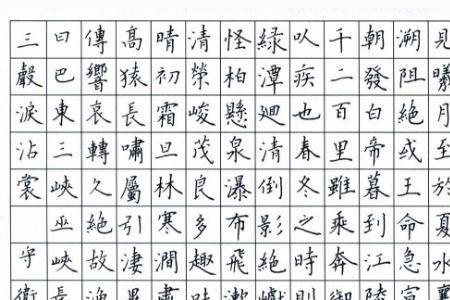 見曦月至於夏水襄
溯阻絕或王命急宣
朝發白帝暮到江陵
千二百里雖乘奔御
以疾也春冬之時則
綠潭廻清倒影絕巘
怪柏懸泉瀑布飛漱
清榮峻茂良多趣味
晴初霜旦林寒澗肅
高猿長嘯屬引淒異
傳響哀轉久絕故漁
曰巴東三峽巫峽長
三聲淚沾裳 守衛